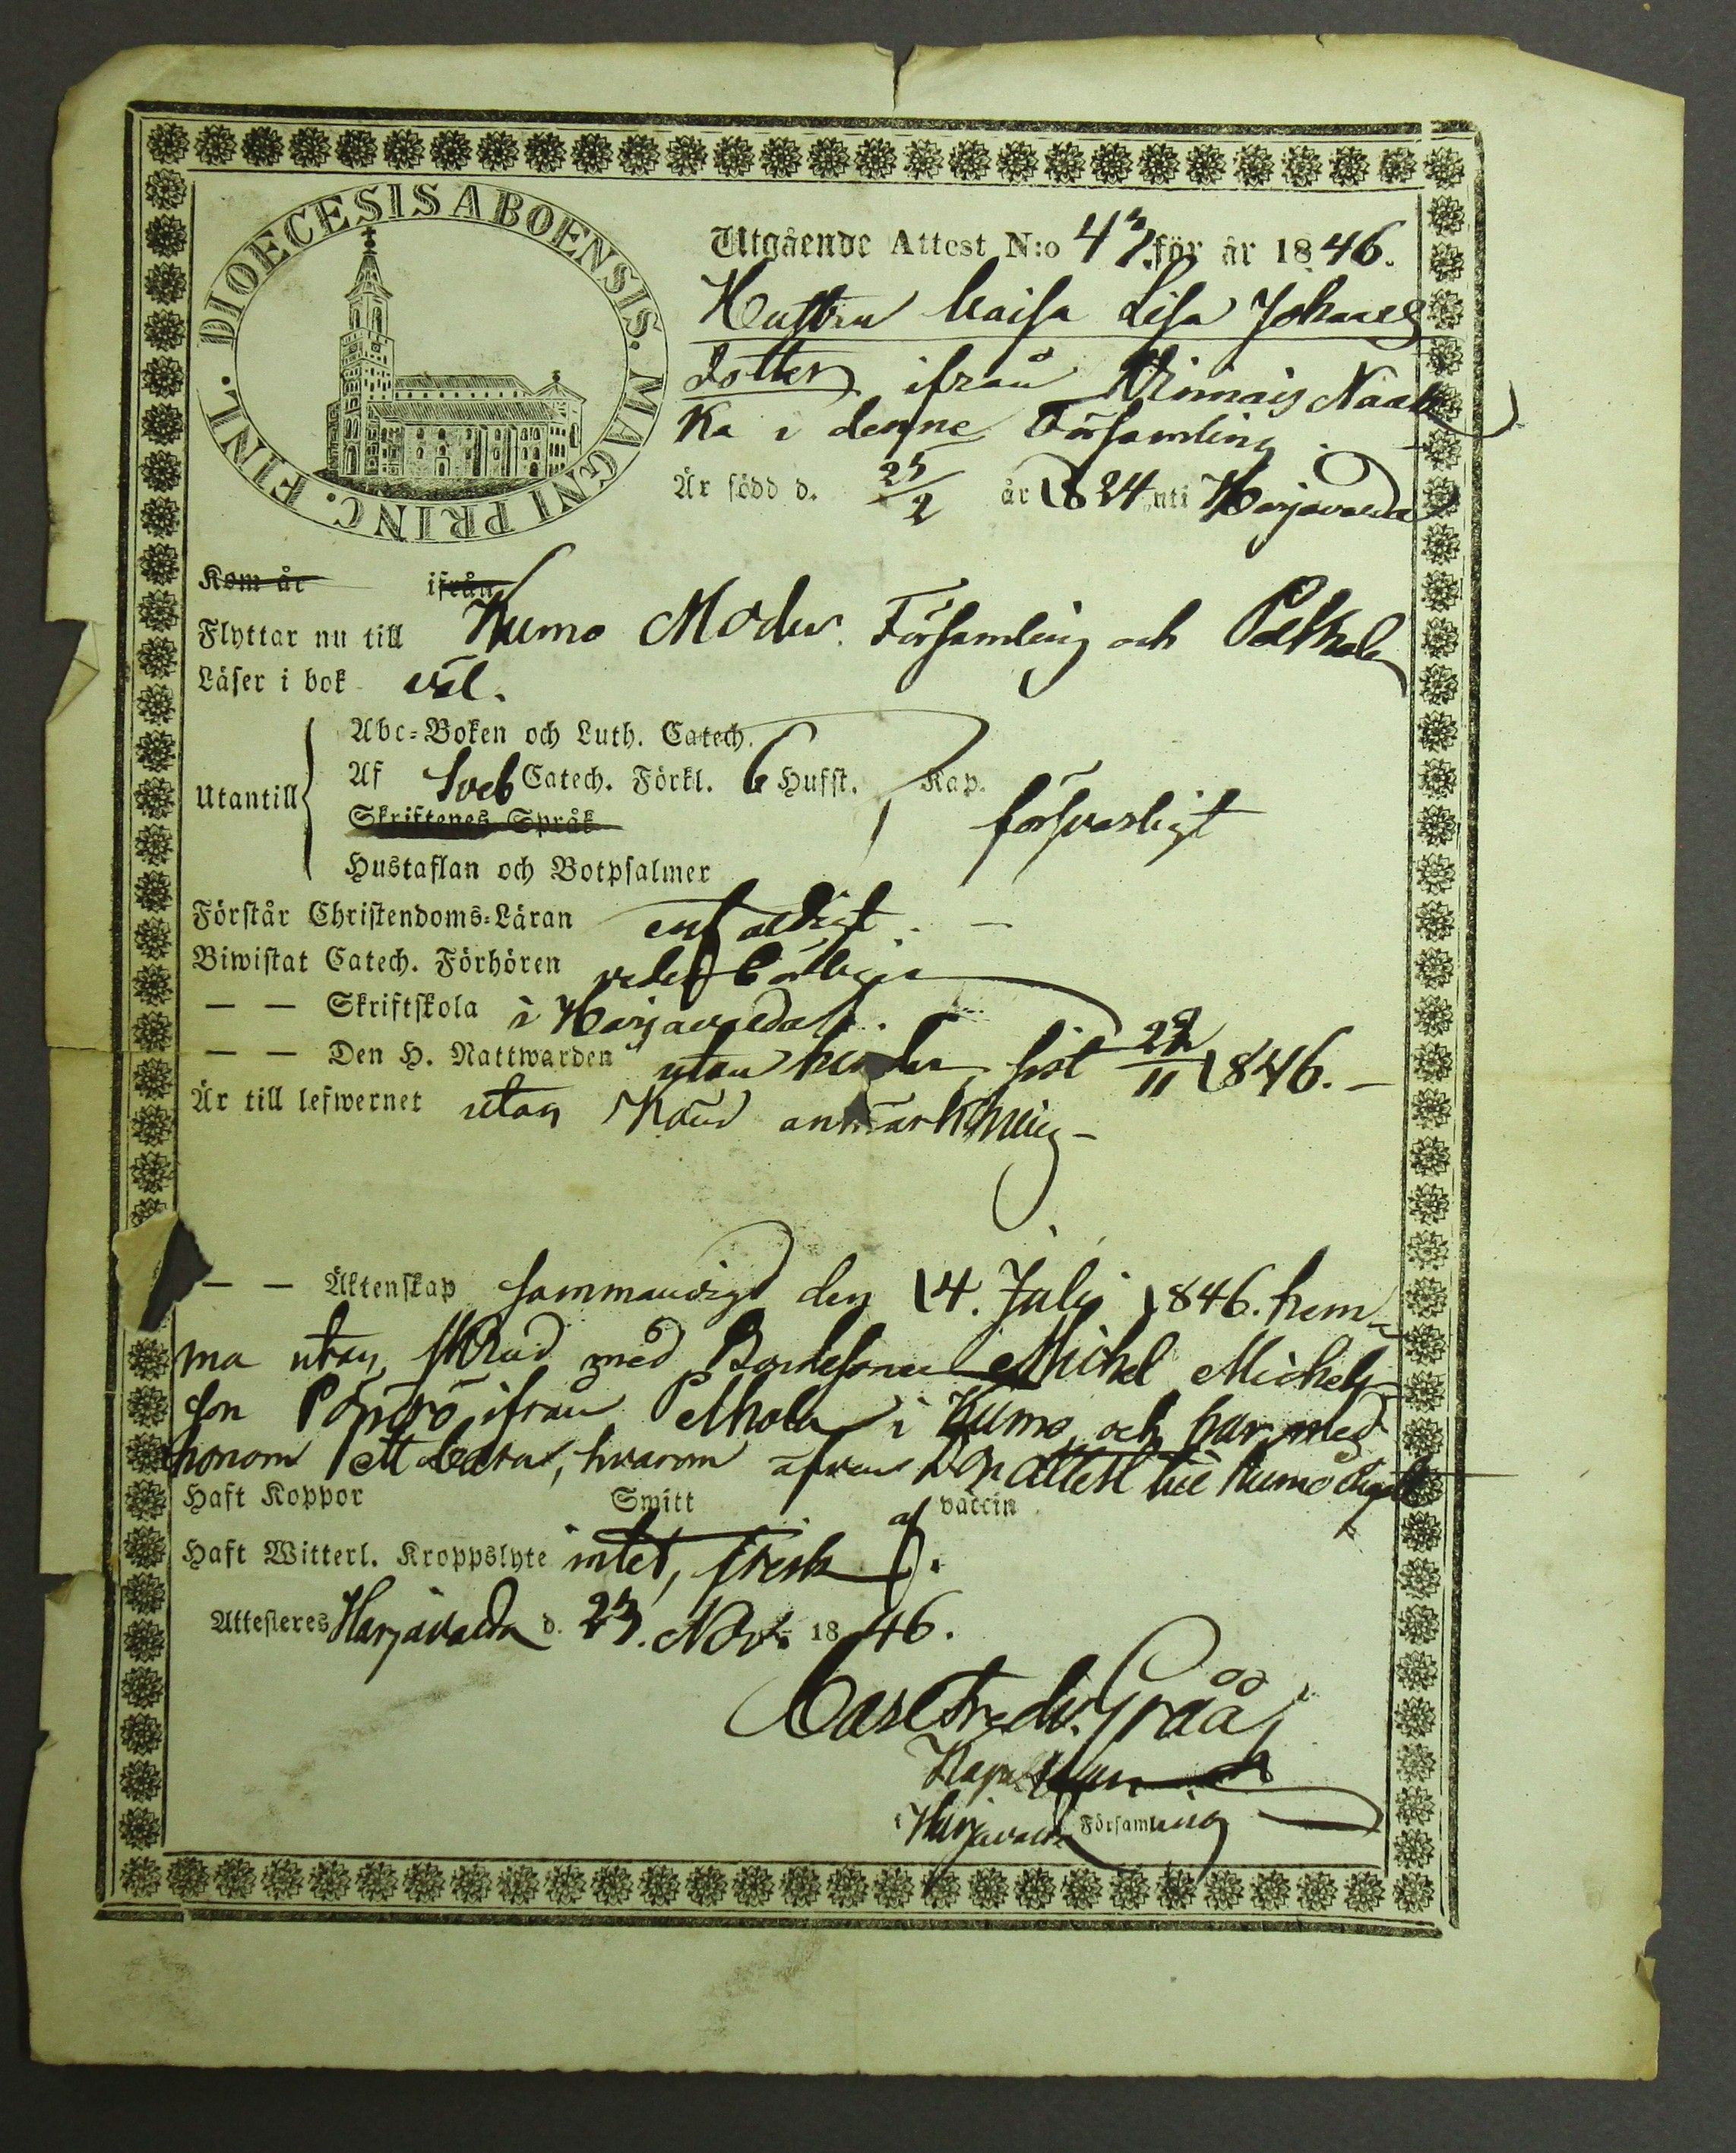 DIOECESIS ABOENSIS. MAGNI PRINC. FINL.
Utgående Attest N:o 47 för år 1846.
Hustru Caisa Lisa Johans
dotter ifrån Näak
ka i denne Församling
Är född d. 25/2 år 1824 uti Harjavalda
Kom år ifrån
Flyttar nu till Kumo Moder Församling och
Läser i bok väl.
Utantill
Abc-Boken och Luth. Catech.
Af Sveb Catech. Förkl. 6 Hufst. Kap.
Skriftenes Språk
försvarligt
Hustaflan och Botpsalmer
Förstår Christendoms-Läran enfaldigt.
Biwistat Catech. Förhören vederbörligen
— — Skriftskola i Harjavalda
— — Den H. Nattwarden utan hinder, sist 22/11 1846. –
Är till lefwernet utan känd anmärkning –
— — Äktenskap sammanvigd den 14. Julij 1846. hem-
ma utan skrud med Bondesonen Michel Michels
son ifrån i Kumo, och har med
honom ett barn, hvarom äfven attest till Kumo
Haft Koppor Smitt af vaccin
Haft Witterl. Kroppslyte intet, frisk
Attesteres Harjavalda d. 27. Nov. 1846.
Carl Fredr. Gråå
Kapellan
i Harjavalda Församling